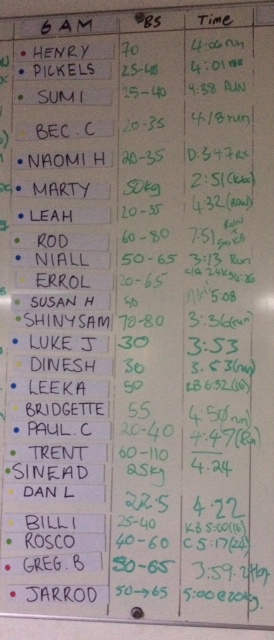 6 AM BS Time
HENRY 70
PICKELS 25-40 4:01
SUMI 25-40 4:38 RUN
BEC.C 20-35 4:18 run
NAOMI H 20-35
MARTY 50kg 2:51
LEAH 20-35 4:32 (Row)
ROD 60-80 7:51
NIALL 50-65 3:13 Run
ERROL 20-65
SUSAN H 50 5:08
SHINYSAM 70-80
LUKE J 30 3:53
DINESH 30 3.53(run)
LEEKA 50 KB 6:32(16)
BRIDGETTE 55 4.50 run)
PAUL.C 20-40 4:47(Run)
TRENT 60-110
SINEAD 25kg 4.24
DAN L 22.5 4.22
BILLI 25-40 KB 5:00(16)
ROSCO 40-60 C 5:17(24)
GREG.B 50-65 3:59.
JARROD 50→65 5:00@20kg.